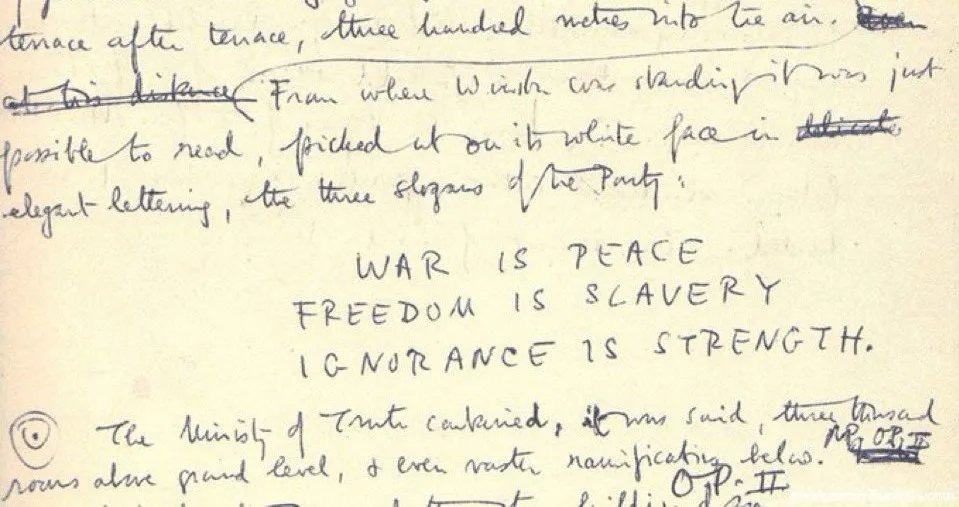 terrace after terrace, three hundred metres into the air. Even
at this distance From where Winston was standing it was just
possible to read, picked out on its white face in delicate
elegant lettering, the three slogans of the Party:
WAR IS PEACE
FREEDOM IS SLAVERY
IGNORANCE IS STRENGTH.
The Ministry of Truth contained, it was said, three thousand
rooms above ground level, & even vaster ramifications below.